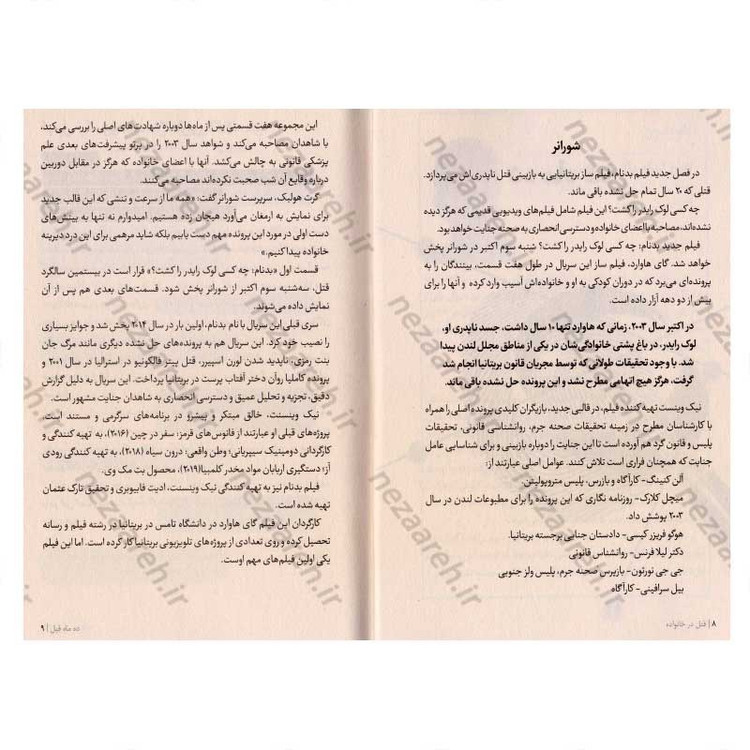 شورانر
در فصل جدید فیلم بدنام، فیلم ساز بریتانیایی به بازبینی قتل ناپدری‌اش می‌پردازد.
قتلی که ۲۰ سال تمام حل نشده باقی ماند.
چه کسی لوک رایدر را کشت؟ این فیلم شامل فیلم‌های ویدیویی قدیمی که هرگز دیده
نشده‌اند، مصاحبه با اعضای خانواده و دسترسی انحصاری به صحنه جنایت خواهد بود.
فیلم جدید بدنام: چه کسی لوک رایدر را کشت؟ شنبه سوم اکتبر در شورانر پخش
خواهد شد. گای هاوارد، فیلم ساز این سریال در طول هفت قسمت، بینندگان را به
پرونده‌ای می‌برد که در دوران کودکی به او و خانواده‌اش آسیب وارد کرده و آنها را برای
بیش از دو دهه آزار داده است.
در اکتبر سال ۲۰۰۳، زمانی که هاوارد تنها ۱۰ سال داشت، جسد ناپدری او،
لوک رایدر، در باغ پشتی خانوادگی‌شان در یکی از مناطق مجلل لندن پیدا
شد. با وجود تحقیقات طولانی که توسط مجریان قانون بریتانیا انجام شد
گرفت، هرگز هیچ اتهامی مطرح نشد و این پرونده حل نشده باقی ماند.
نیک وینست تهیه کننده فیلم، در قالبی جدید، بازیگران کلیدی پرونده اصلی را همراه
با کارشناسان مطرح در زمینه تحقیقات صحنه جرم، روانشناسی قانونی، تحقیقات
پلیس و قانون گرد هم آورده است تا این جنایت را دوباره بازبینی و برای شناسایی عامل
جنایت که همچنان فراری است تلاش کنند. عوامل اصلی عبارتند از:
آلن کنینگ- کارآگاه و بازرس، پلیس متروپولیتن.
میچل کلارک- روزنامه نگاری که این پرونده را برای مطبوعات لندن در سال
۲۰۰۳ پوشش داد.
هوگو فریزر کیسی- دادستان جنایی برجسته بریتانیا.
دکتر لیلا فرنس- روانشناس قانونی
جی جی نورتون- بازپرس صحنه جرم، پلیس ولز جنوبی
بیل سرافینی- کارآگاه
۸ | قتل در خانواده
این مجموعه هفت قسمتی پس از ماه‌ها دوباره شهادت‌های اصلی را بررسی می‌کند،
با شاهدان مصاحبه می‌کند و شواهد سال ۲۰۰۳ را در پرتو پیشرفت‌های بعدی علم
پزشکی قانونی به چالش می‌کشد. آنها با اعضای خانواده که هرگز در مقابل دوربین
درباره وقایع آن شب صحبت نکرده‌اند مصاحبه می‌کنند.
گرت هولبک، سرپرست شورانر گفت: «همه ما از سرعت و تنشی که این قالب جدید
برای نمایش به ارمغان می‌آورد هیجان زده هستیم. امیدوارم نه تنها به بینش‌های
دست اولی در مورد این پرونده مهم دست یابیم بلکه شاید مرهمی برای این درد دیرینه
خانواده پیدا کنیم.»
قسمت اول «بدنام: چه کسی لوک رایدر را کشت؟» قرار است در بیستمین سالگرد
قتل، سه‌شنبه سوم اکتبر از شورانر پخش شود. قسمت‌های بعدی هم پس از آن
نمایش داده می‌شوند.
سری قبلی این سریال با نام بدنام، اولین بار در سال ۲۰۱۴ پخش شد و جوایز بسیاری
را نصیب خود کرد. این فیلم هم به پرونده‌های حل نشده دیگری مانند مرگ جان
بنت رمزی، ناپدید شدن لورن اسپیرر، قتل پیتر فالکونیو در استرالیا در سال ۲۰۰۱ و
پرونده کاملیا روان دختر آفتاب پرست در بریتانیا پرداخت. این سریال به دلیل گزارش
دقیق، تجزیه و تحلیل عمیق و دسترسی انحصاری به شاهدان جنایت مشهور است.
نیک وینسنت، خالق مبتکر و پیشرو در برنامه‌های سرگرمی و مستند است.
پروژه‌های قبلی او عبارتند از فانوس‌های قرمز: سفر در چین (۲۰۱۶)، به تهیه کنندگی و
کارگردانی دومینیک سیبریانی؛ وطن واقعی: درون سیاه (۲۰۱۸)، به تهیه کنندگی رودی
آز؛ دستگیری اربابان مواد مخدر کلمبیا(۲۰۱۹)، محصول بت مک وی.
فیلم بدنام نیز به تهیه کنندگی نیک وینسنت، ادیت فابیوبری و تحقیق تارک عثمان
تهیه شده است.
کارگردان این فیلم گای هاوارد در دانشگاه تامس در بریتانیا در رشته فیلم و رسانه
تحصیل کرده و روی تعدادی از پروژه‌های تلویزیونی بریتانیا کار کرده است. اما این فیلم
یکی اولین فیلم‌های مهم اوست.
ده ماه قبل | ۹
nezaareh.ir